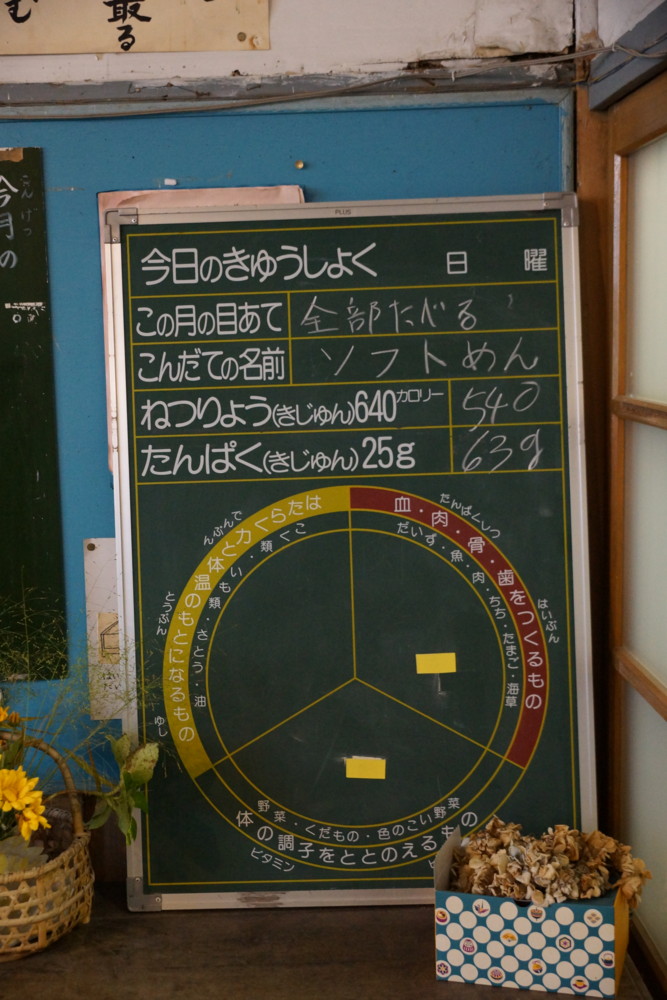 最る
む
今月の
えんげつ
PLUS
今日のきゅうしょく 日 曜
この月の目あて 全部たべる
こんだての名前 ソフトめん
ねつりょう(きじゅん)640カロリー 540
たんぱく(きじゅん)25g 63g
でんぷん
とうぶん
ゆし
体と力くらたは
温のもとになるもの
こくぐ類・いも類・さとう・油
たんぱくしつ
はいぶん
血・肉・骨・歯をつくるもの
だいず・魚・肉・ちち・たまご・海草
野菜・くだもの・色のこい野菜
体の調子をととのえるもの
ビタミン